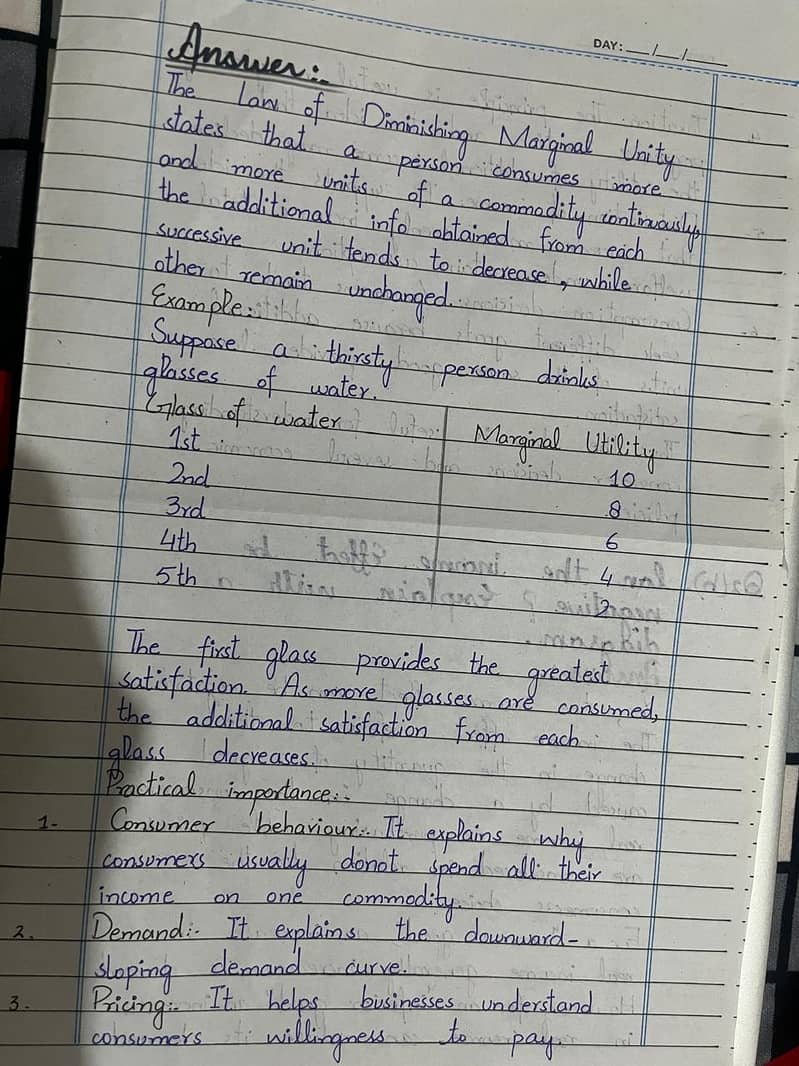 DAY: __/__/__
Answer:-
The Law of Diminishing Marginal Unity
states that a person consumes more
and more units of a commodity continuously,
the additional info obtained from each
successive unit tends to decrease, while
other remain unchanged.
Example:
Suppose a thirsty person drinks
glasses of water.
Glass of water Marginal Utility
1st 10
2nd 8
3rd 6
4th 4
5th 2
The first glass provides the greatest
satisfaction. As more glasses are consumed,
the additional satisfaction from each
glass decreases.
Practical importance:-
1- Consumer behaviour:- It explains why
consumers usually donot spend all their
income on one commodity.
2. Demand:- It explains the downward-
sloping demand curve.
3. Pricing:- It helps businesses understand
consumers willingness to pay.